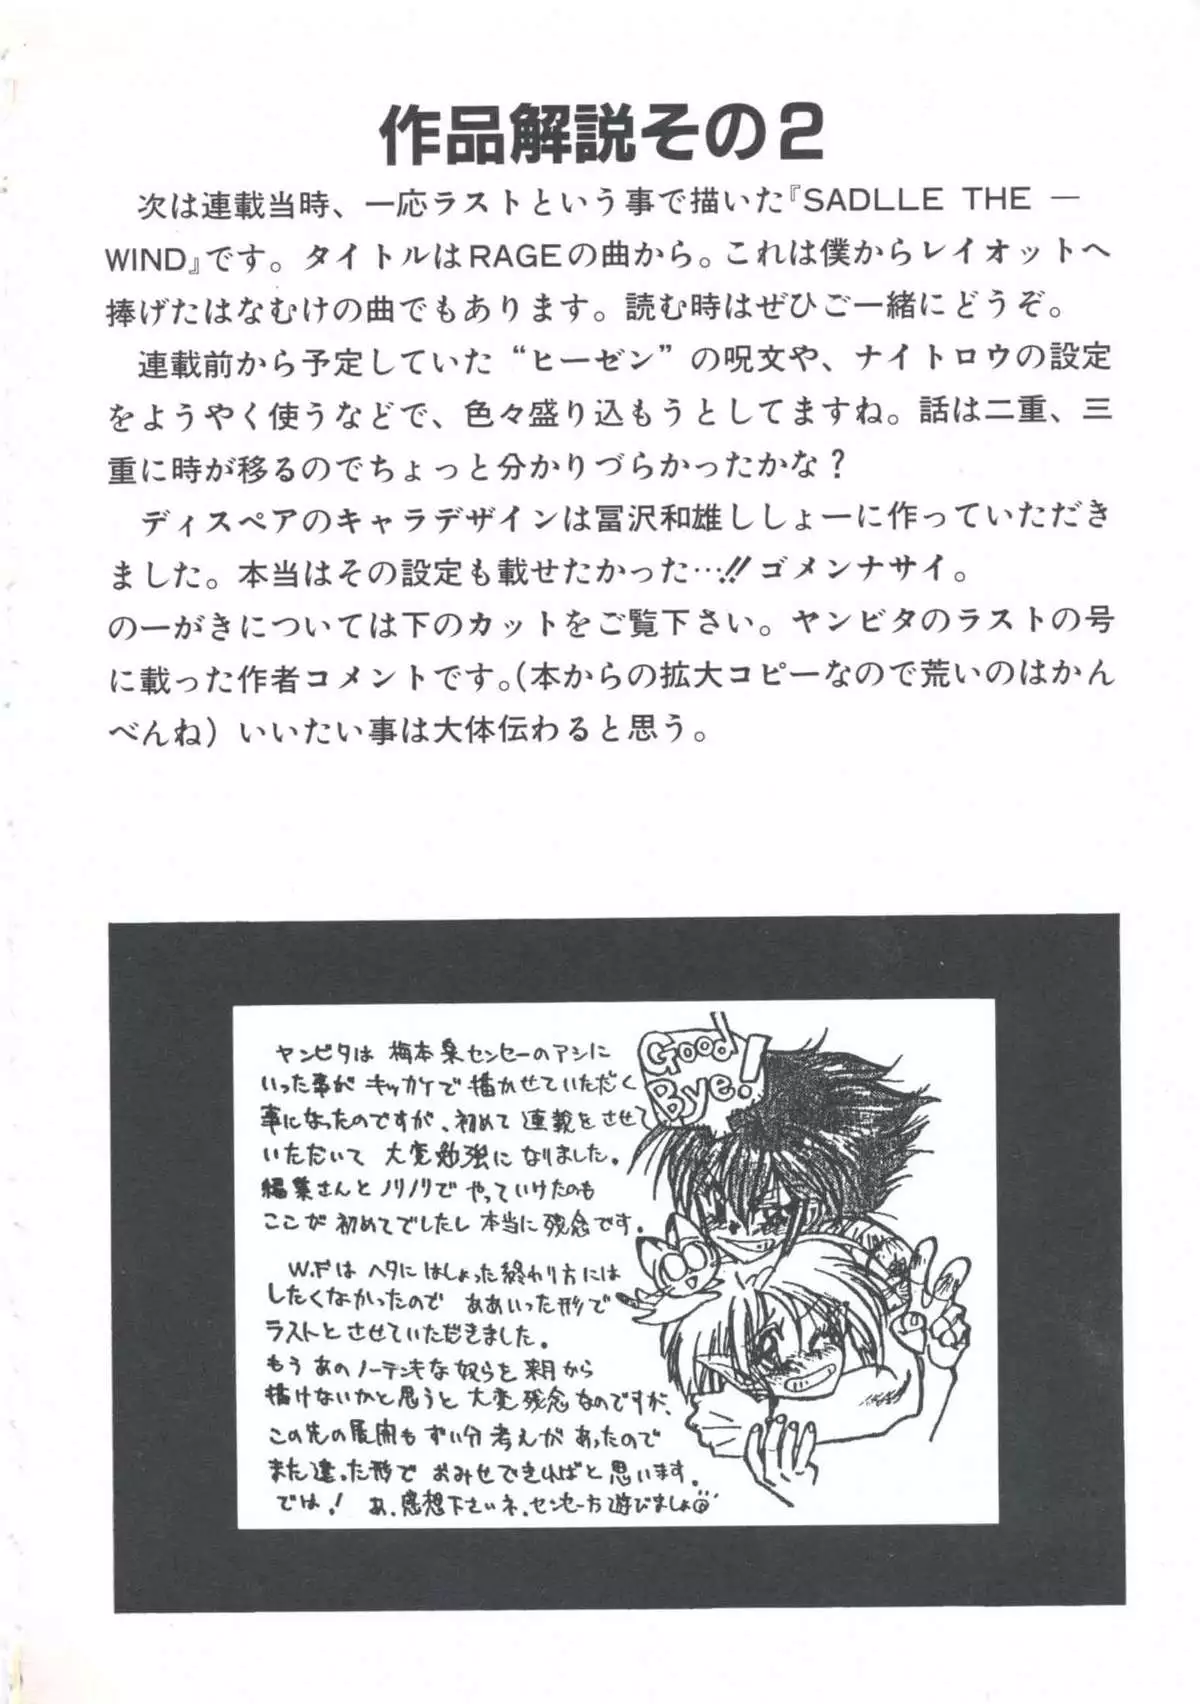 作品解説その2
次は連載当時、一応ラストという事で描いた『SADLLE THE —
WIND』です。タイトルはRAGEの曲から。これは僕からレイオットへ
捧げたはなむけの曲でもあります。読む時はぜひご一緒にどうぞ。
連載前から予定していた“ヒーゼン”の呪文や、ナイトロウの設定
をようやく使うなどで、色々盛り込もうとしてますね。話は二重、三
重に時が移るのでちょっと分かりづらかったかな？
ディスペアのキャラデザインは冨沢和雄ししょーに作っていただき
ました。本当はその設定も載せたかった…!!ゴメンナサイ。
のーがきについては下のカットをご覧下さい。ヤンビタのラストの号
に載った作者コメントです。(本からの拡大コピーなので荒いのはかん
べんね）いいたい事は大体伝わると思う。
Good!
Bye!
ヤンビタは 梅本泉センセーのアシに
いった事が キッカケで 描かせていただく
事になったのですが、初めて 連載をさせて
いただいて 大変勉強になりました。
編集さんと ノリノリで やっていけたのも
ここが 初めてでしたし 本当に 残念です。
W.Fは ヘタに はしょった 終わり方には
したくなかったので ああいった形で
ラストと させていただきました。
もう あの ノーテンキな 奴らを 来月から
描けないかと 思うと 大変 残念 なのですが、
この先の 展開も ずい分 考えが あったので
また 違った形で おみせできればと 思います。
では! あ、感想下さいネ、センセー方 遊びましょ